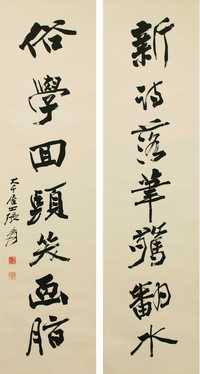 新詩落筆驚翻水
俗學回頭笑畫脂
大千居士張爰